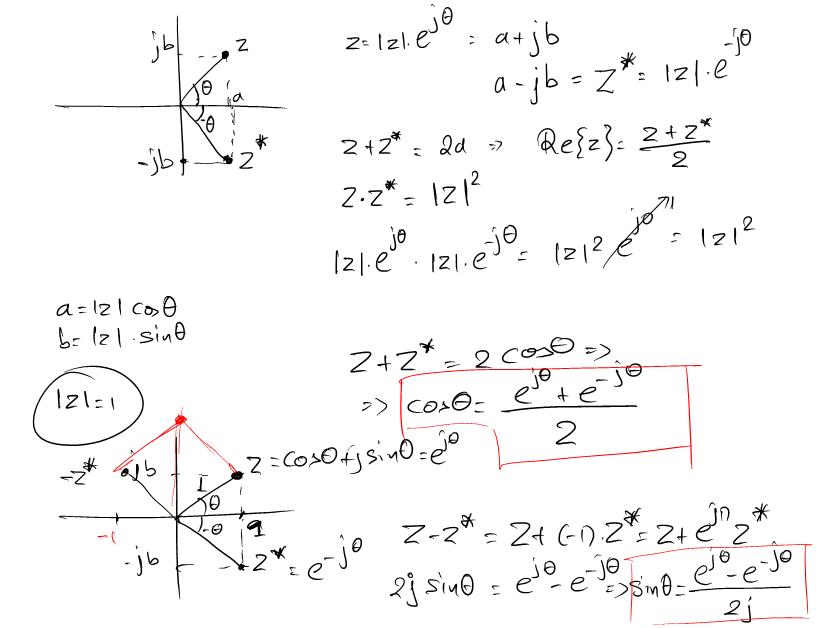 jb z
θ
a
-θ
-jb z*
z = |z|.e^{jθ} = a+jb
a-jb = z* = |z|.e^{-jθ}
z+z* = 2a => Re{z} = \frac{z+z*}{2}
z.z* = |z|^2
|z|.e^{jθ} . |z|.e^{-jθ} = |z|^2 e^{j0} 1 = |z|^2
a = |z| cosθ
b = |z| . sinθ
|z|=1
z+z* = 2 cosθ =>
=> cosθ = \frac{e^{jθ} + e^{-jθ}}{2}
-z* jb z = cosθ+jsinθ = e^{jθ}
1 θ
-1 -θ
-jb z* = e^{-jθ}
z-z* = z+(-1).z* = z+e^{jπ} z*
2j sinθ = e^{jθ} - e^{-jθ} => sinθ = \frac{e^{jθ} - e^{-jθ}}{2j}